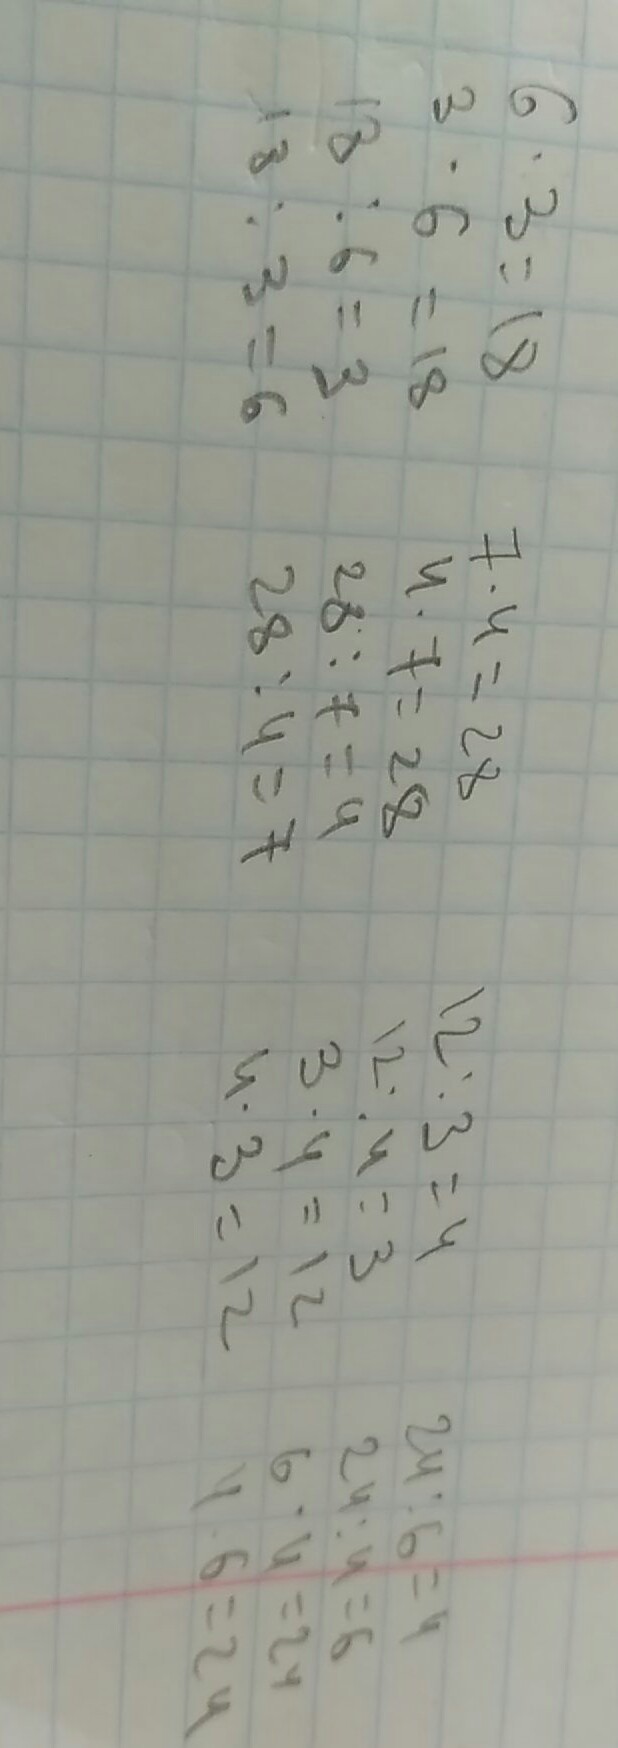 6 · 3 = 18
3 · 6 = 18
18 : 6 = 3
18 : 3 = 6
7 · 4 = 28
4 · 7 = 28
28 : 7 = 4
28 : 4 = 7
12 : 3 = 4
12 : 4 = 3
3 · 4 = 12
4 · 3 = 12
24 : 6 = 4
24 : 4 = 6
6 · 4 = 24
4 · 6 = 24